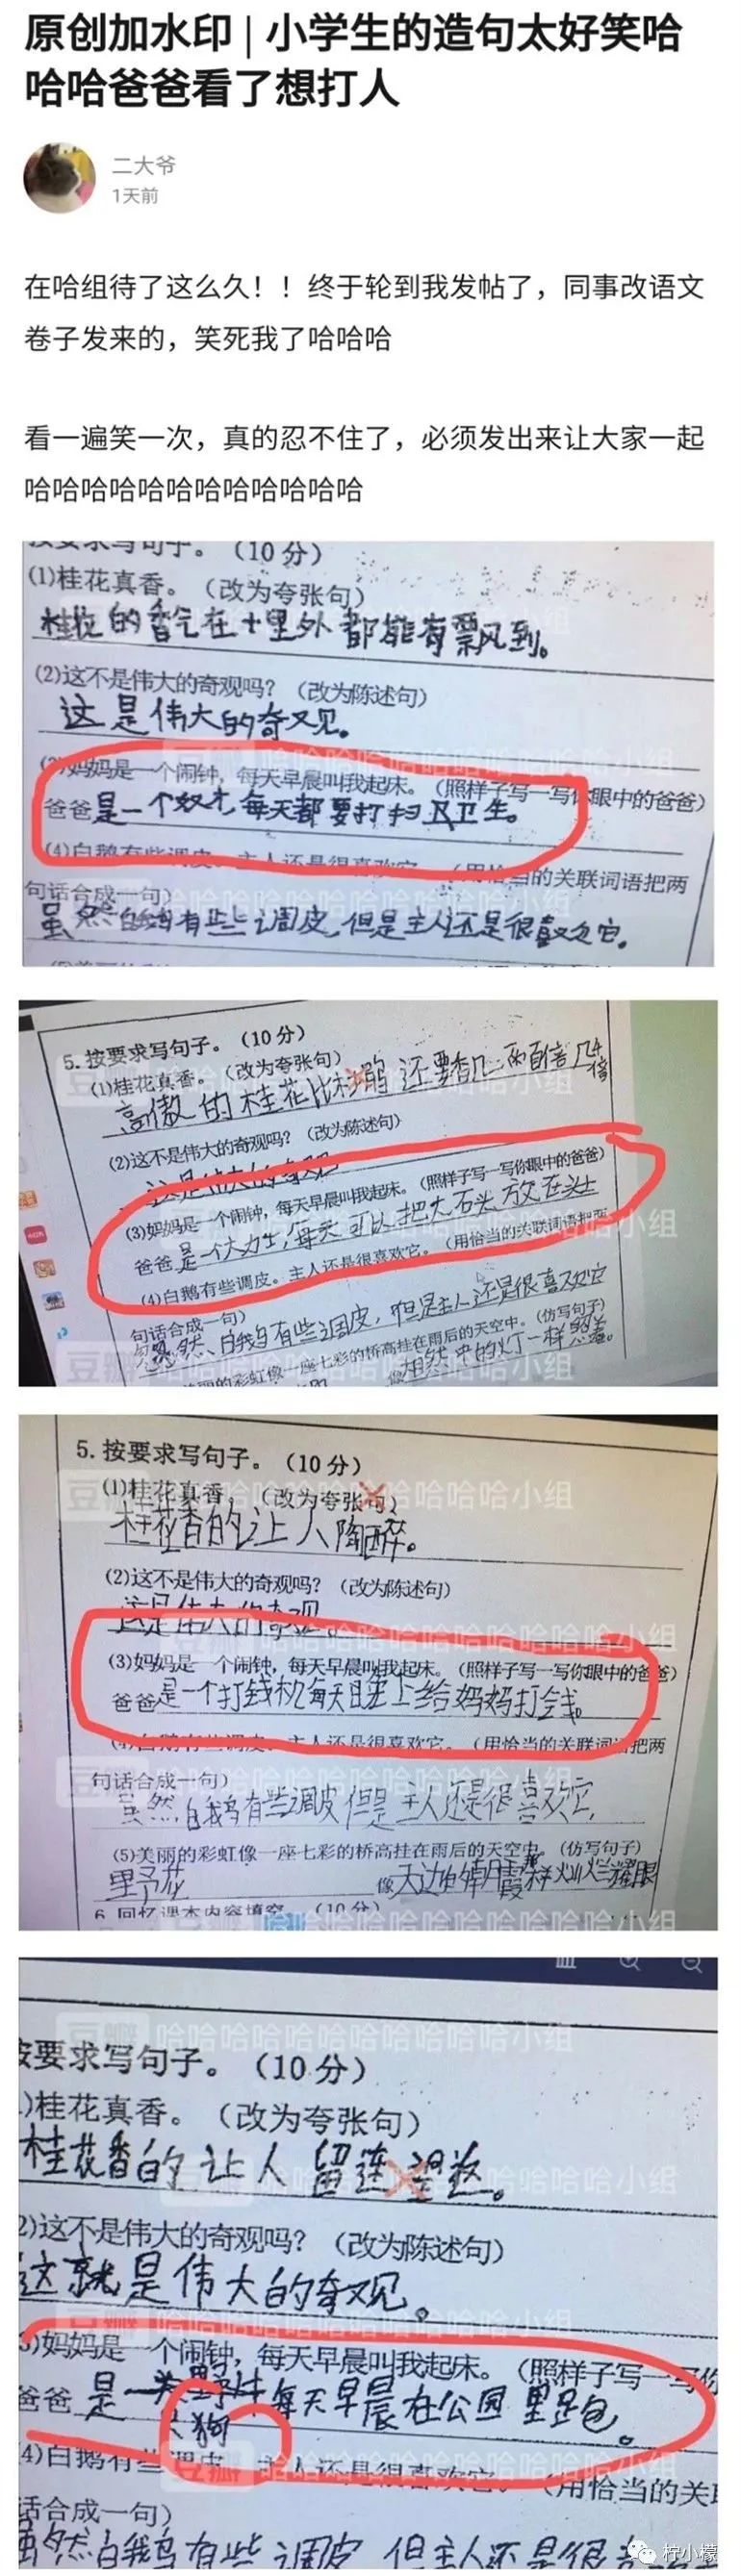 原创加水印 | 小学生的造句太好笑哈
哈哈爸爸看了想打人
二大爷
1天前
在哈组待了这么久！！终于轮到我发帖了，同事改语文
卷子发来的，笑死我了哈哈哈
看一遍笑一次，真的忍不住了，必须发出来让大家一起
哈哈哈哈哈哈哈哈哈哈哈哈
按要求写句子。（10分）
(1)桂花真香。（改为夸张句）
桂花的香气在十里外都能有飘到。
(2)这不是伟大的奇观吗？（改为陈述句）
这是伟大的奇观。
(3)妈妈是一个闹钟，每天早晨叫我起床。（照样子写一写你眼中的爸爸）
爸爸是一个奴才每天都要打扫卫生。
(4)白鹅有些调皮。主人还是很喜欢它。（用恰当的关联词语把两
句话合成一句）
虽然白鹅有些调皮，但是主人还是很喜欢它。
5.按要求写句子。（10分）
(1)桂花真香。（改为夸张句）
(2)这不是伟大的奇观吗？（改为陈述句）
这是伟大的奇观
(3)妈妈是一个闹钟，每天早晨叫我起床。（照样子写一写你眼中的爸爸）
爸爸是一个大力士，每天可以把大石头放在头上
(4)白鹅有些调皮。主人还是很喜欢它。（用恰当的关联词语把两
句话合成一句）
虽然白鹅有些调皮，但是主人还是很喜欢它
美丽的彩虹像一座七彩的桥高挂在雨后的天空中。（仿写句子）
5.按要求写句子。（10分）
(1)桂花真香。（改为夸张句）
桂花香的让人陶醉。
(2)这不是伟大的奇观吗？（改为陈述句）
这是伟大的奇观。
(3)妈妈是一个闹钟，每天早晨叫我起床。（照样子写一写你眼中的爸爸）
爸爸是一个打钱机每天晚上给妈妈打钱。
(4)白鹅有些调皮。主人还是很喜欢它。（用恰当的关联词语把两
句话合成一句）
虽然白鹅有些调皮但是主人还是很喜欢它
(5)美丽的彩虹像一座七彩的桥高挂在雨后的天空中。（仿写句子）
野花像天边的朝霞一样灿烂耀眼
6.回忆课本内容填空。（10分）
按要求写句子。（10分）
)桂花真香。（改为夸张句）
桂花香的让人留连望返。
2)这不是伟大的奇观吗？（改为陈述句）
这就是伟大的奇观。
3)妈妈是一个闹钟，每天早晨叫我起床。（照样子写一写你
爸爸是一 野狗每天早晨在公园里跑。
(4)白鹅有些调皮。主人还是很喜欢它。（用恰当的关联
话合成一句）
虽然白鹅有些调皮但主人还是很
柠小檬